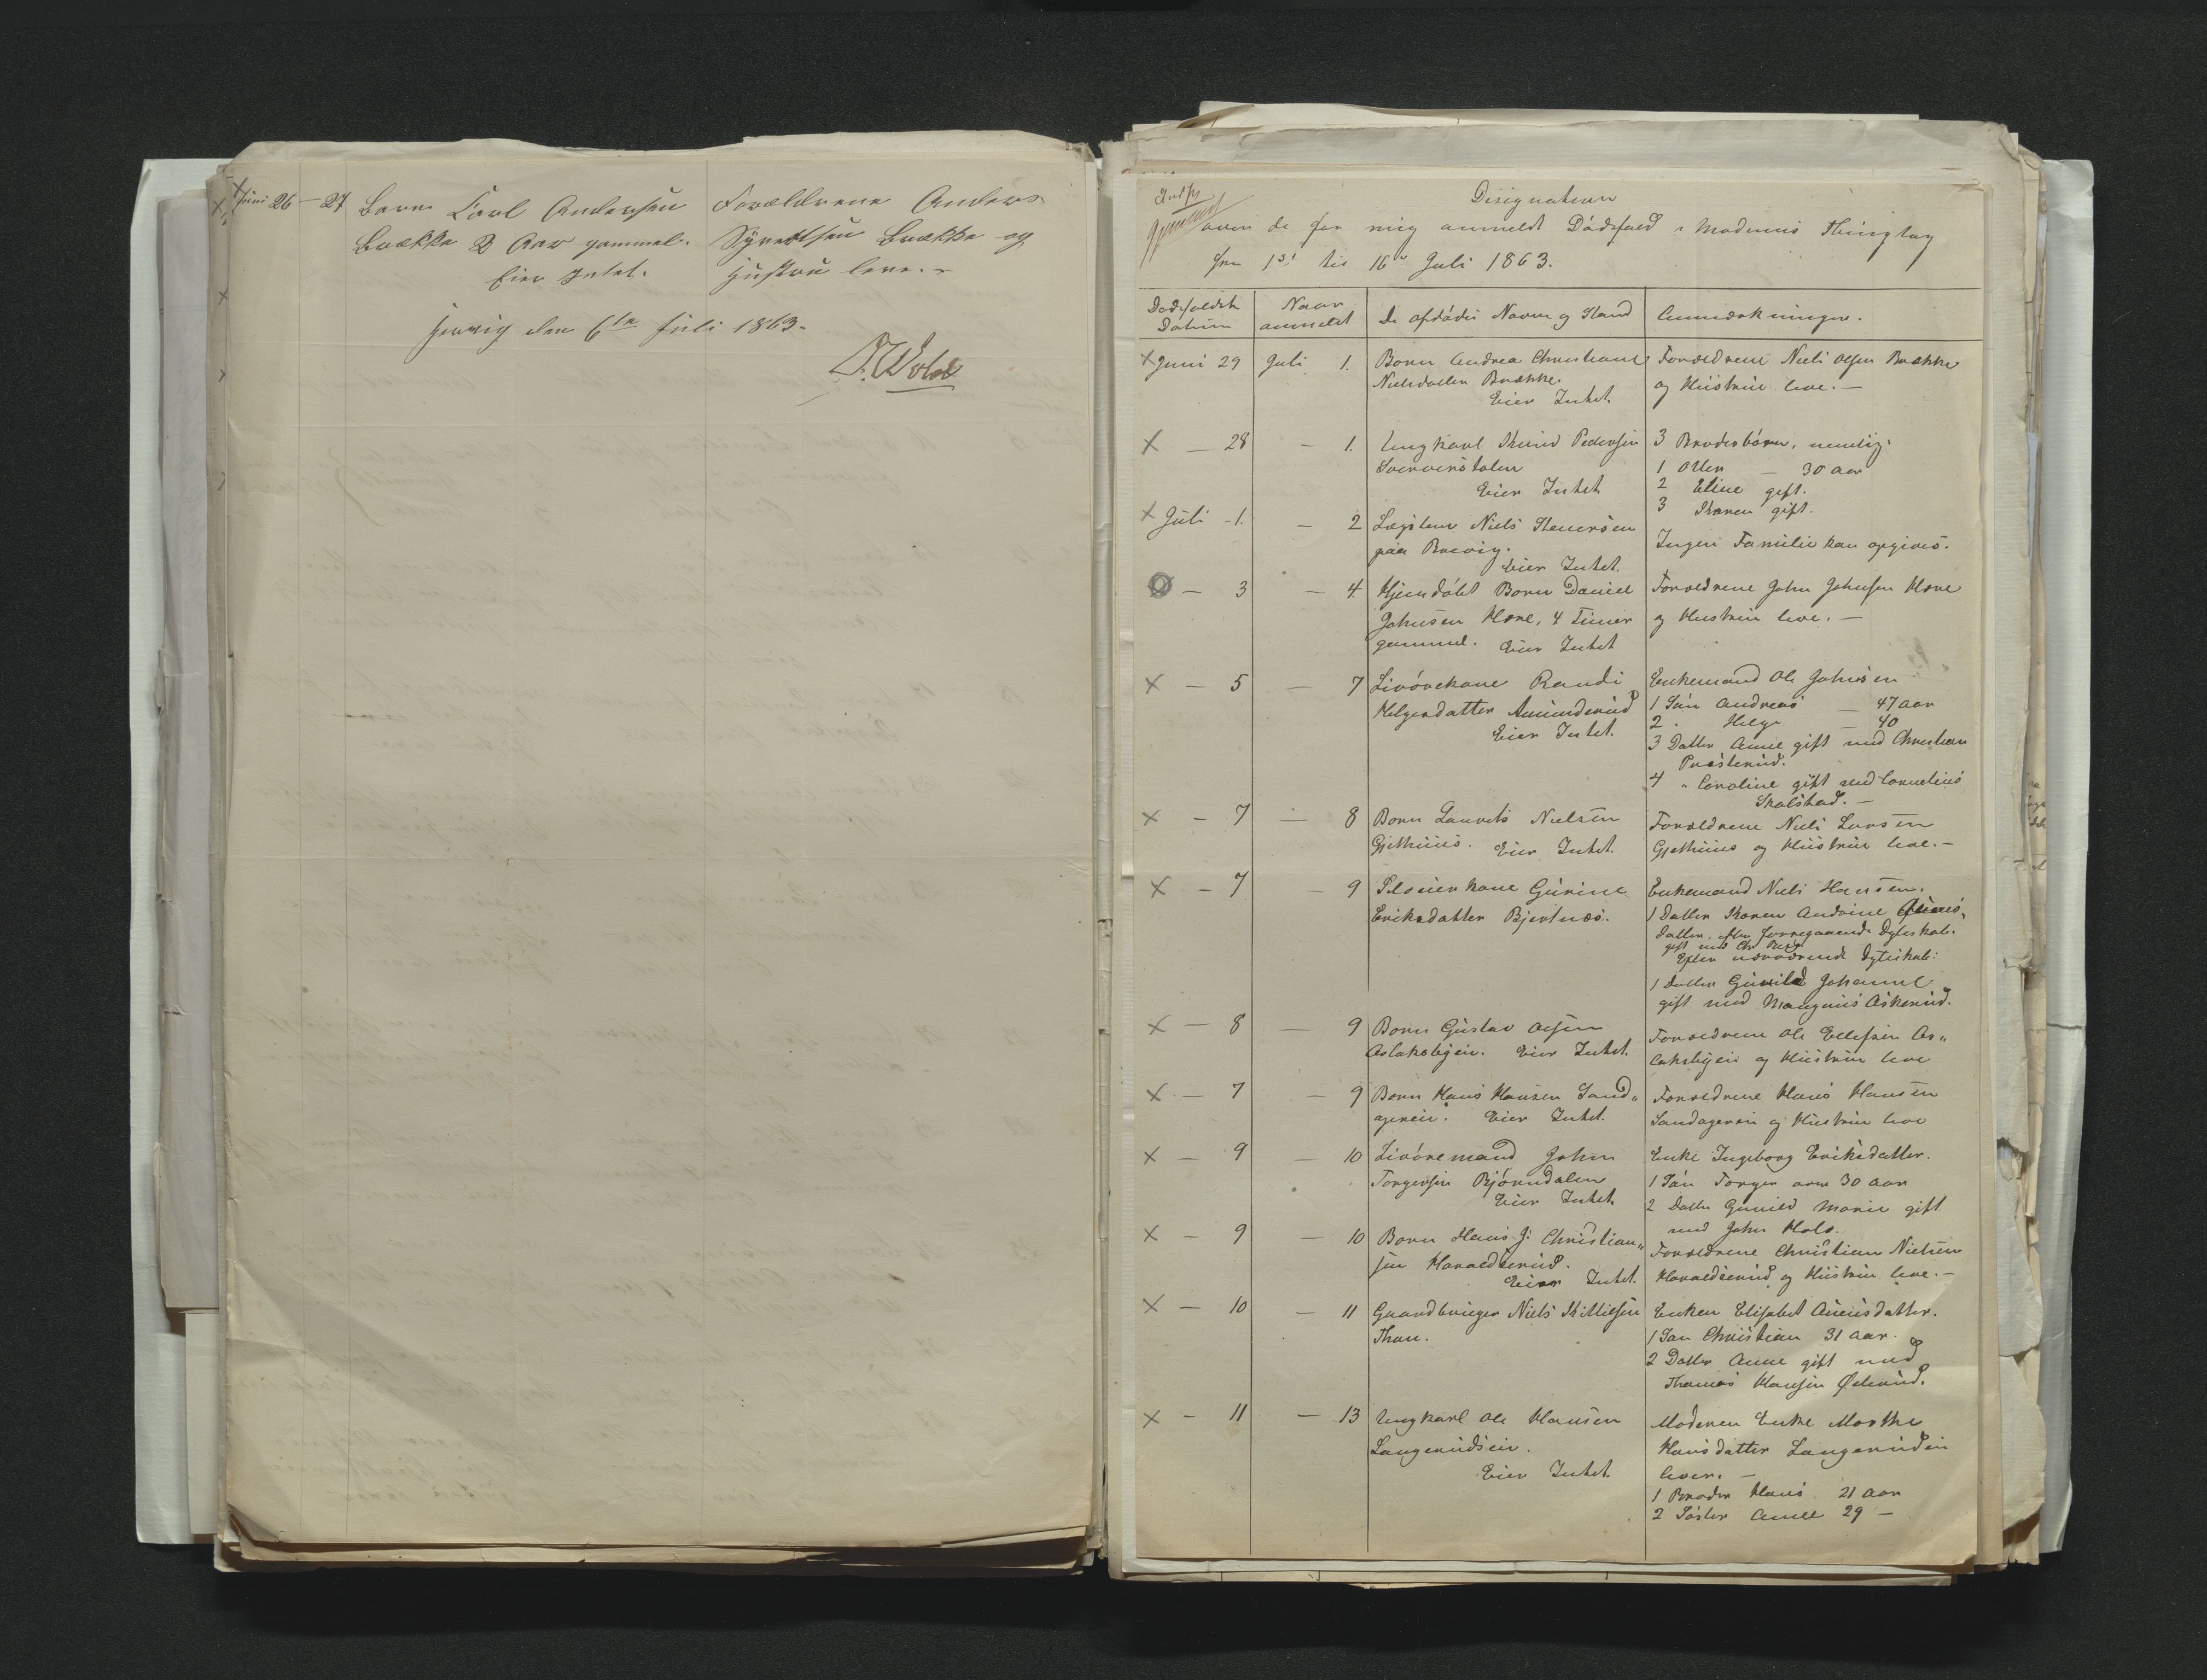 Juni 26 – 27 Barn Carl Andersen Forældrene Anders
Brække 2 Aar gammel. Syvertsen Brække og
Eier Intet. Hustru leve. –
Hervig den 6te Juli 1863.
Wold
Designation
over de for mig anmeldt Dödsfald i Modums Thinglag
fra 1st til 16 Juli 1863.
Dødsfaldets Datum
Naar anmeldt
De afdødes Navn og Stand
Anmærkninger.
x Juni 29 Juli 1. Barn Andrea Christiane Forældrene Niels Olsen Brække
Nielsdatter Brække. og Hustrue leve. –
Eier Intet.
x – 28 – 1. Ungkarl Knud Pedersen 3 Broderbørn, nemlig:
1 Ollen – 30 Aar
Eier Intet 2 Eline gift.
3 Karen gift.
x Juli 1. – 2 Lægslem Niels Steensen
paa Brevig. Ingen Familie kan opgives.
Eier Intet.
– 3 – 4. Hjemdöbt Barn Daniel Forældrene John Johnsen Hæve
Johnsen Hæve, 4 Timer og Hustrue leve. –
gammel. Eier Intet
x – 5 – 7 Livörekone Randi Enkemand Ole Johnsen
Helgesdatter Amunderud 1 Sön Andreas – 47 Aar
Eier Intet. 2 . Helge – 40
3 Datter Anne gift med Christian
Præsterud.
4 " Caroline gift med Cornelius
Skalstad. –
x – 7 – 8 Barn Laurits Nielsen Forældrene Niels Larsen
Gjethuus. Eier Intet. Gjethuus og Hustrue leve. –
x – 7 – 9 Pladseierkone Gurine Enkemand Niels Hansen.
Eriksdatter Bjertnæs. 1 Datter Karen Andrine
datter, efter forregaaende Egteskab.
gift med Chr
Efter nærværende Egteskab:
1 Datter Gunild Johanne
gift med Mangnus Askerud.
x – 8 – 9 Barn Gustav Olsen Forældrene Ole Ellefsen As„
Aslaksbyeie. Eier Intet. laksbyeie og Hustrue leve
x – 7 – 9 Barn Hans Hansen Sand„ Forældrene Hans Hansen
agereie. Eier Intet. Sandagereie og Hustrue leve
x – 9 – 10 Livöremand John Enke Ingeborg Eriksdatter.
Torgersen Bjørndalen 1 Sön Torger over 30 Aar
Eier Intet 2 Datter Gunild Marie gift
med John Hals.
x – 9 – 10 Barn Hans J: Christian„ Forældrene Christian Nielsen
sen Haraldserud. Haraldserud og Hustrue leve. –
Eier Intet.
x – 10 – 11 Gaardbruger Niels Kittilsen Enken Elisabet Amundsdatter.
Thon. 1 Sön Christian 31 Aar.
2 Datter Anne gift med
Thomas Hansen Øderud.
x – 11 – 13 Ungkarl Ole Hansen Moderen Enke Marthe
Langerudseie. Hansdatter Langerudeie
Eier Intet lever. –
1 Broder Hans 21 Aar
2 Söster Anne 29 –